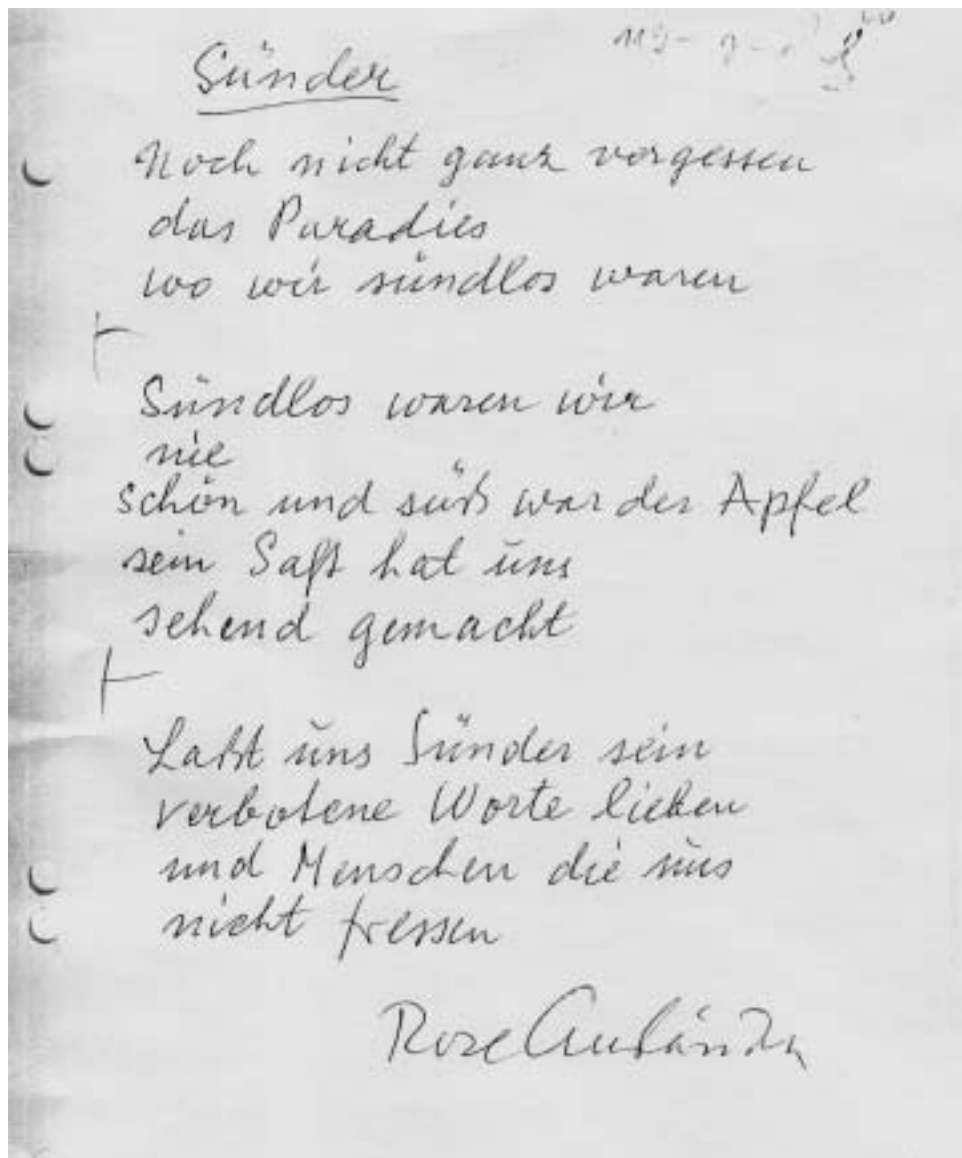 Sünder
Noch nicht ganz vergessen
das Paradies
wo wir sündlos waren
Sündlos waren wir
nie
schön und süß war der Apfel
sein Saft hat uns
sehend gemacht
Laßt uns Sünder sein
verbotene Worte lieben
und Menschen die uns
nicht fressen
Rose Ausländer